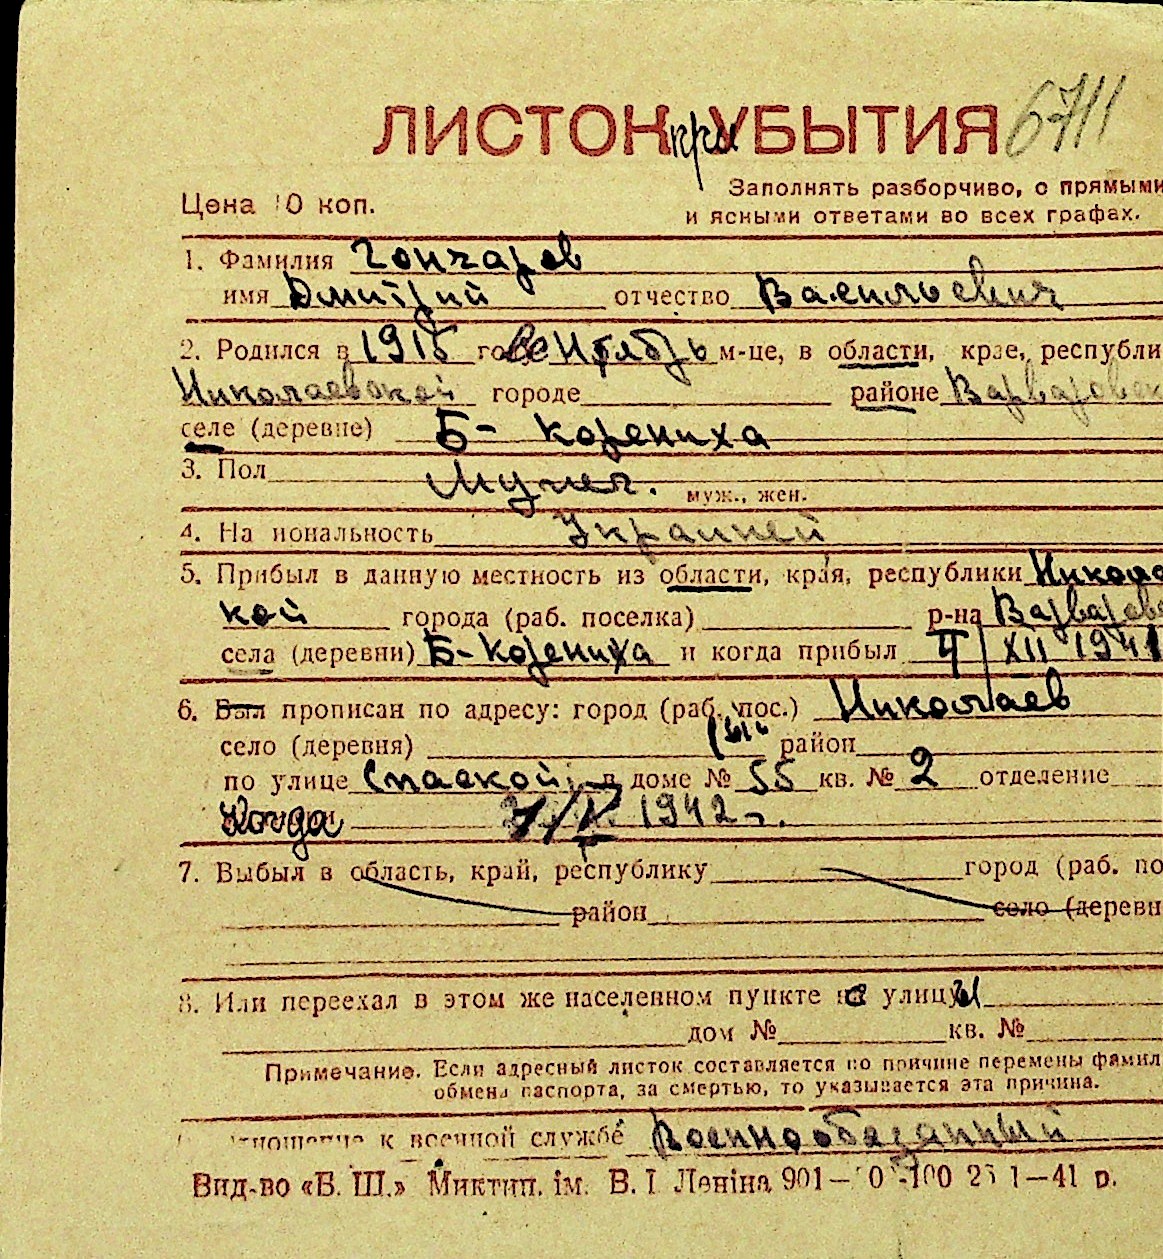 ЛИСТОК при УБЫТИЯ 6711
Цена 10 коп.
Заполнять разборчиво, с прямыми
и ясными ответами во всех графах.
1. Фамилия Гончаров
имя Дмитрий отчество Васильевич
2. Родился в 1915 году сентябрь м-це, в области, крае, республи
Николаевской городе районе Варваровск
селе (деревне) Б- корениха
3. Пол Мужск. муж., жен.
4. Национальность Украинец
5. Прибыл в данную местность из области, края, республики Никола
кой города (раб. поселка) р-на Варваровс
села (деревни) Б-Корениха и когда прибыл XII 1941
6. Был прописан по адресу: город (раб. пос.) Николаев
село (деревня) район
по улице Спаской в доме № 55 кв. № 2 отделение
Когда 7/IV 1942 г.
7. Выбыл в область, край, республику город (раб. по
район село (деревн
8. Или переехал в этом же населенном пункте с улицы
дом № кв. №
Примечание. Если адресный листок составляется по причине перемены фамил
обмена паспорта, за смертью, то указывается эта причина.
отношение к военной службе Военнообязанный
Вид-во «Б. Ш.» Миктип. ім. В. І Леніна 901— 1—41 р.